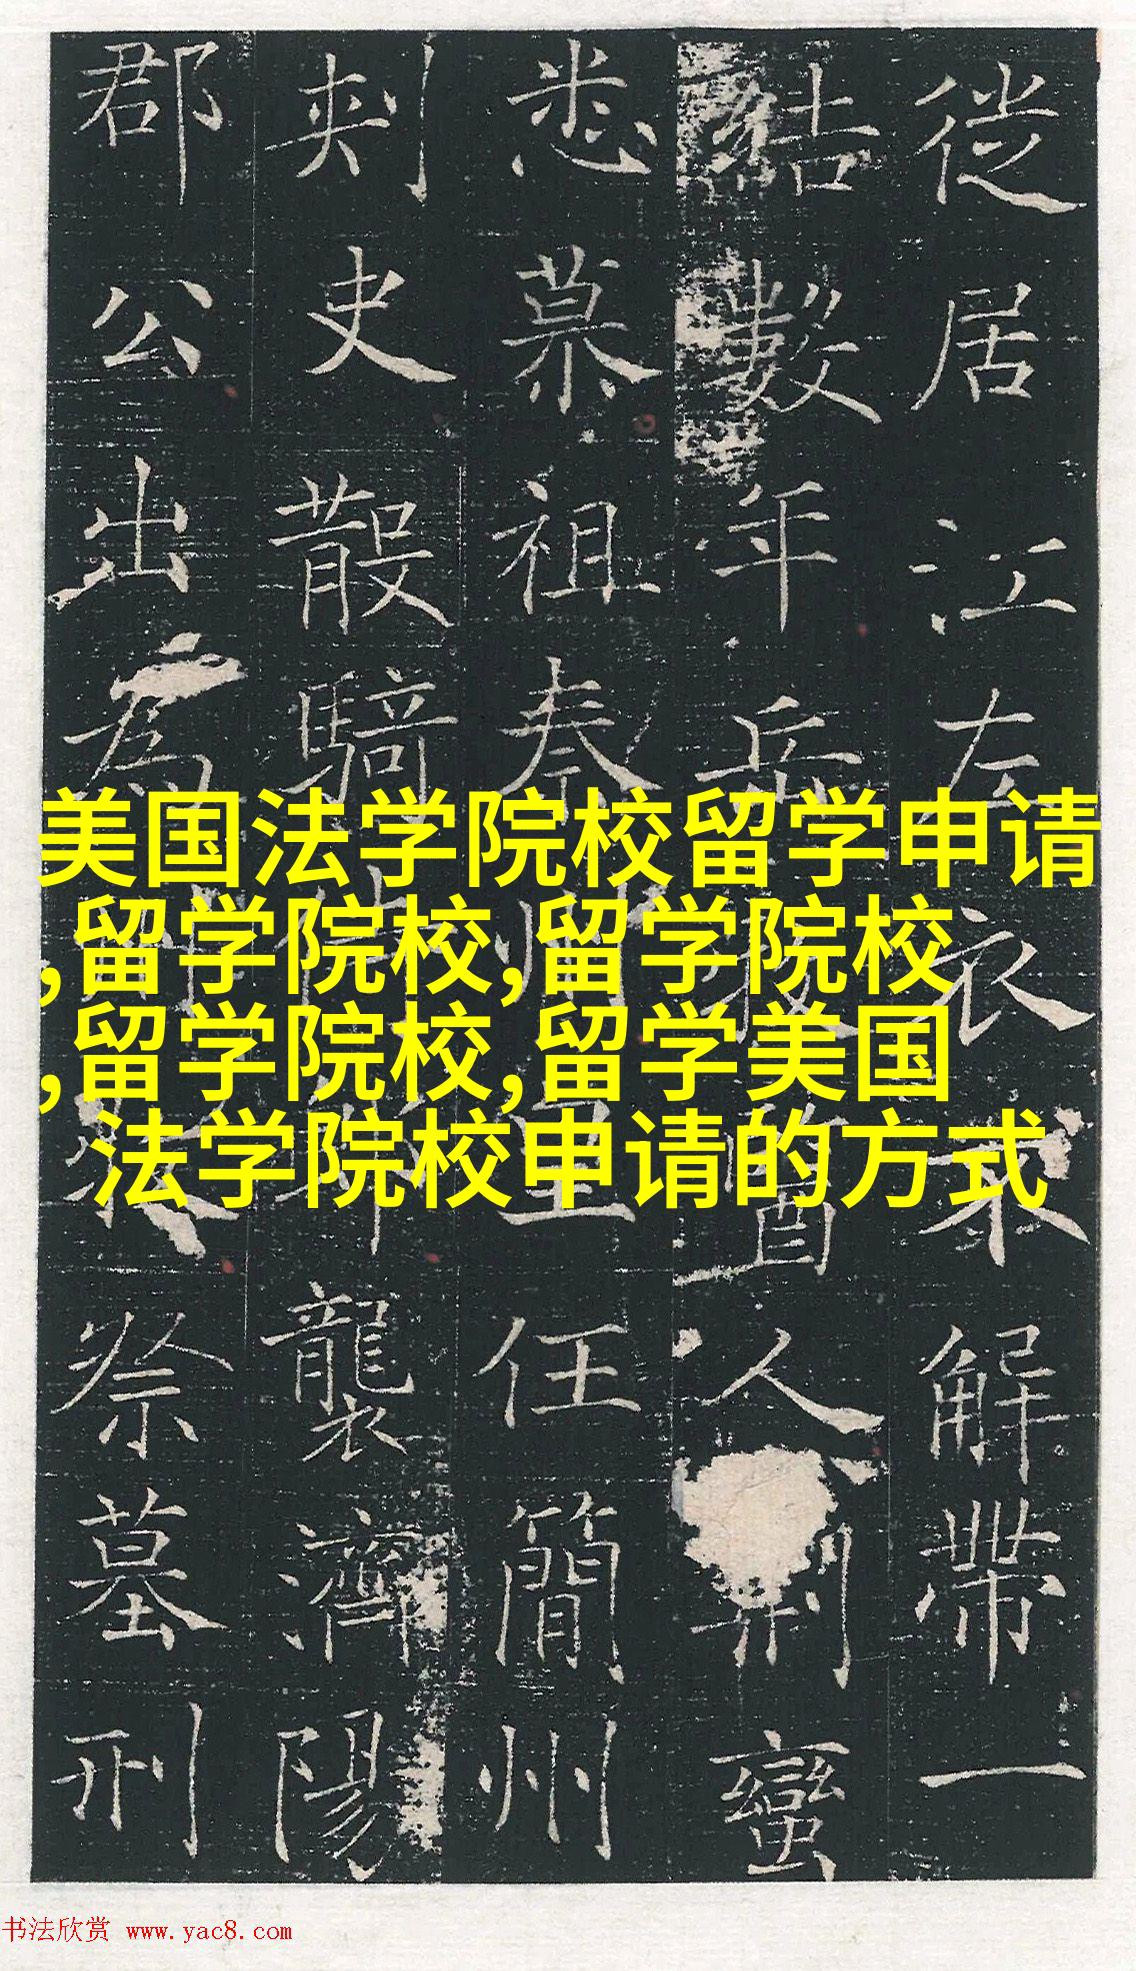 徙居江左衣不解帶一
結數年人蠻
悉慕祖任簡州
刺史散騎襲濟陽
郡公出為祭墓刑
美国法学院校留学申请
,留学院校,留学院校
,留学院校,留学美国
法学院校申请的方式
书法欣赏 www.yac8.com